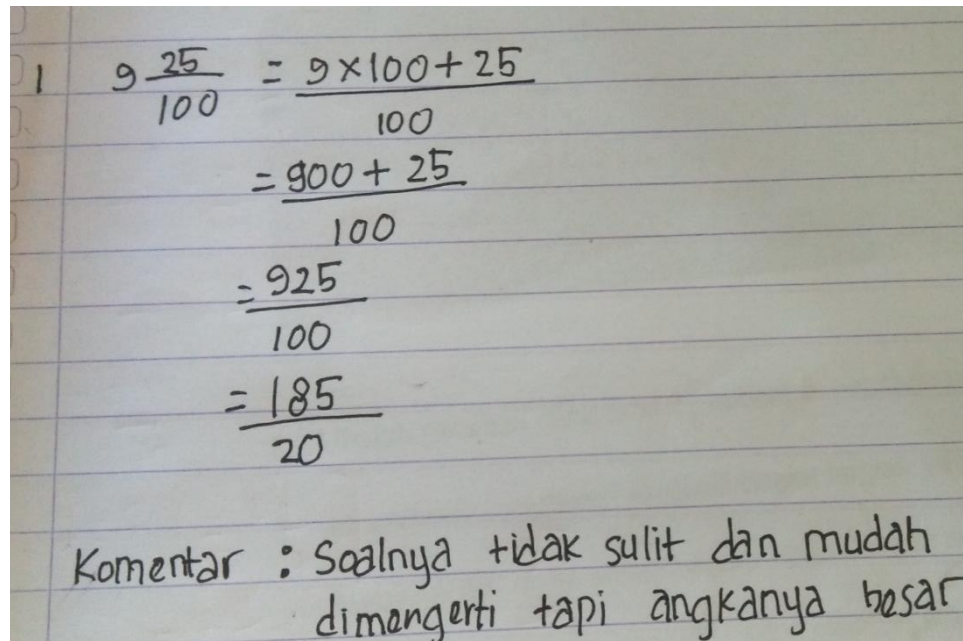 1 9 25/100 = 9×100+25/100
= 900+ 25/100
= 925/100
= 185/20
Komentar : Soalnya tidak sulit dan mudah
dimengerti tapi angkanya besar